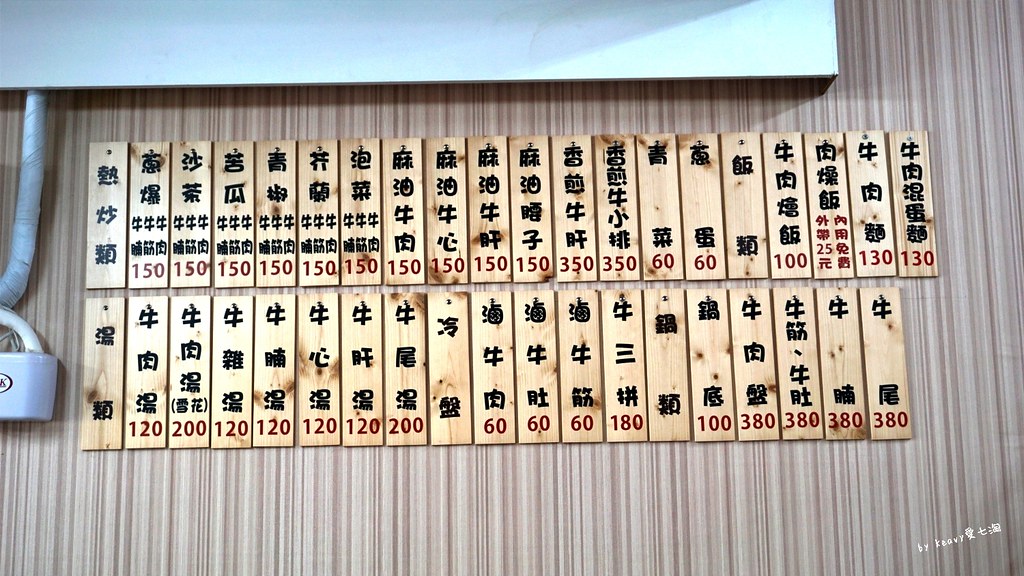 熱炒類
蔥爆牛腩牛筋牛肉150
沙茶牛腩牛筋牛肉150
苦瓜牛腩牛筋牛肉150
青椒牛腩牛筋牛肉150
芥蘭牛腩牛筋牛肉150
泡菜牛腩牛筋牛肉150
麻油牛肉150
麻油牛心150
麻油牛肝150
麻油腰子150
香煎牛肝350
香煎牛小排350
青菜60
蔥蛋60
飯類
牛肉燴飯100
肉燥飯內用免費外帶25元
牛肉麵130
牛肉混蛋麵130
湯類
牛肉湯120
牛肉湯(雪花)200
牛雜湯120
牛腩湯120
牛心湯120
牛肝湯120
牛尾湯200
冷盤
滷牛肉60
滷牛肚60
滷牛筋60
牛三拼180
鍋類
鍋底100
牛肉盤380
牛筋、牛肚380
牛腩380
牛尾380
by keavy愛七淘